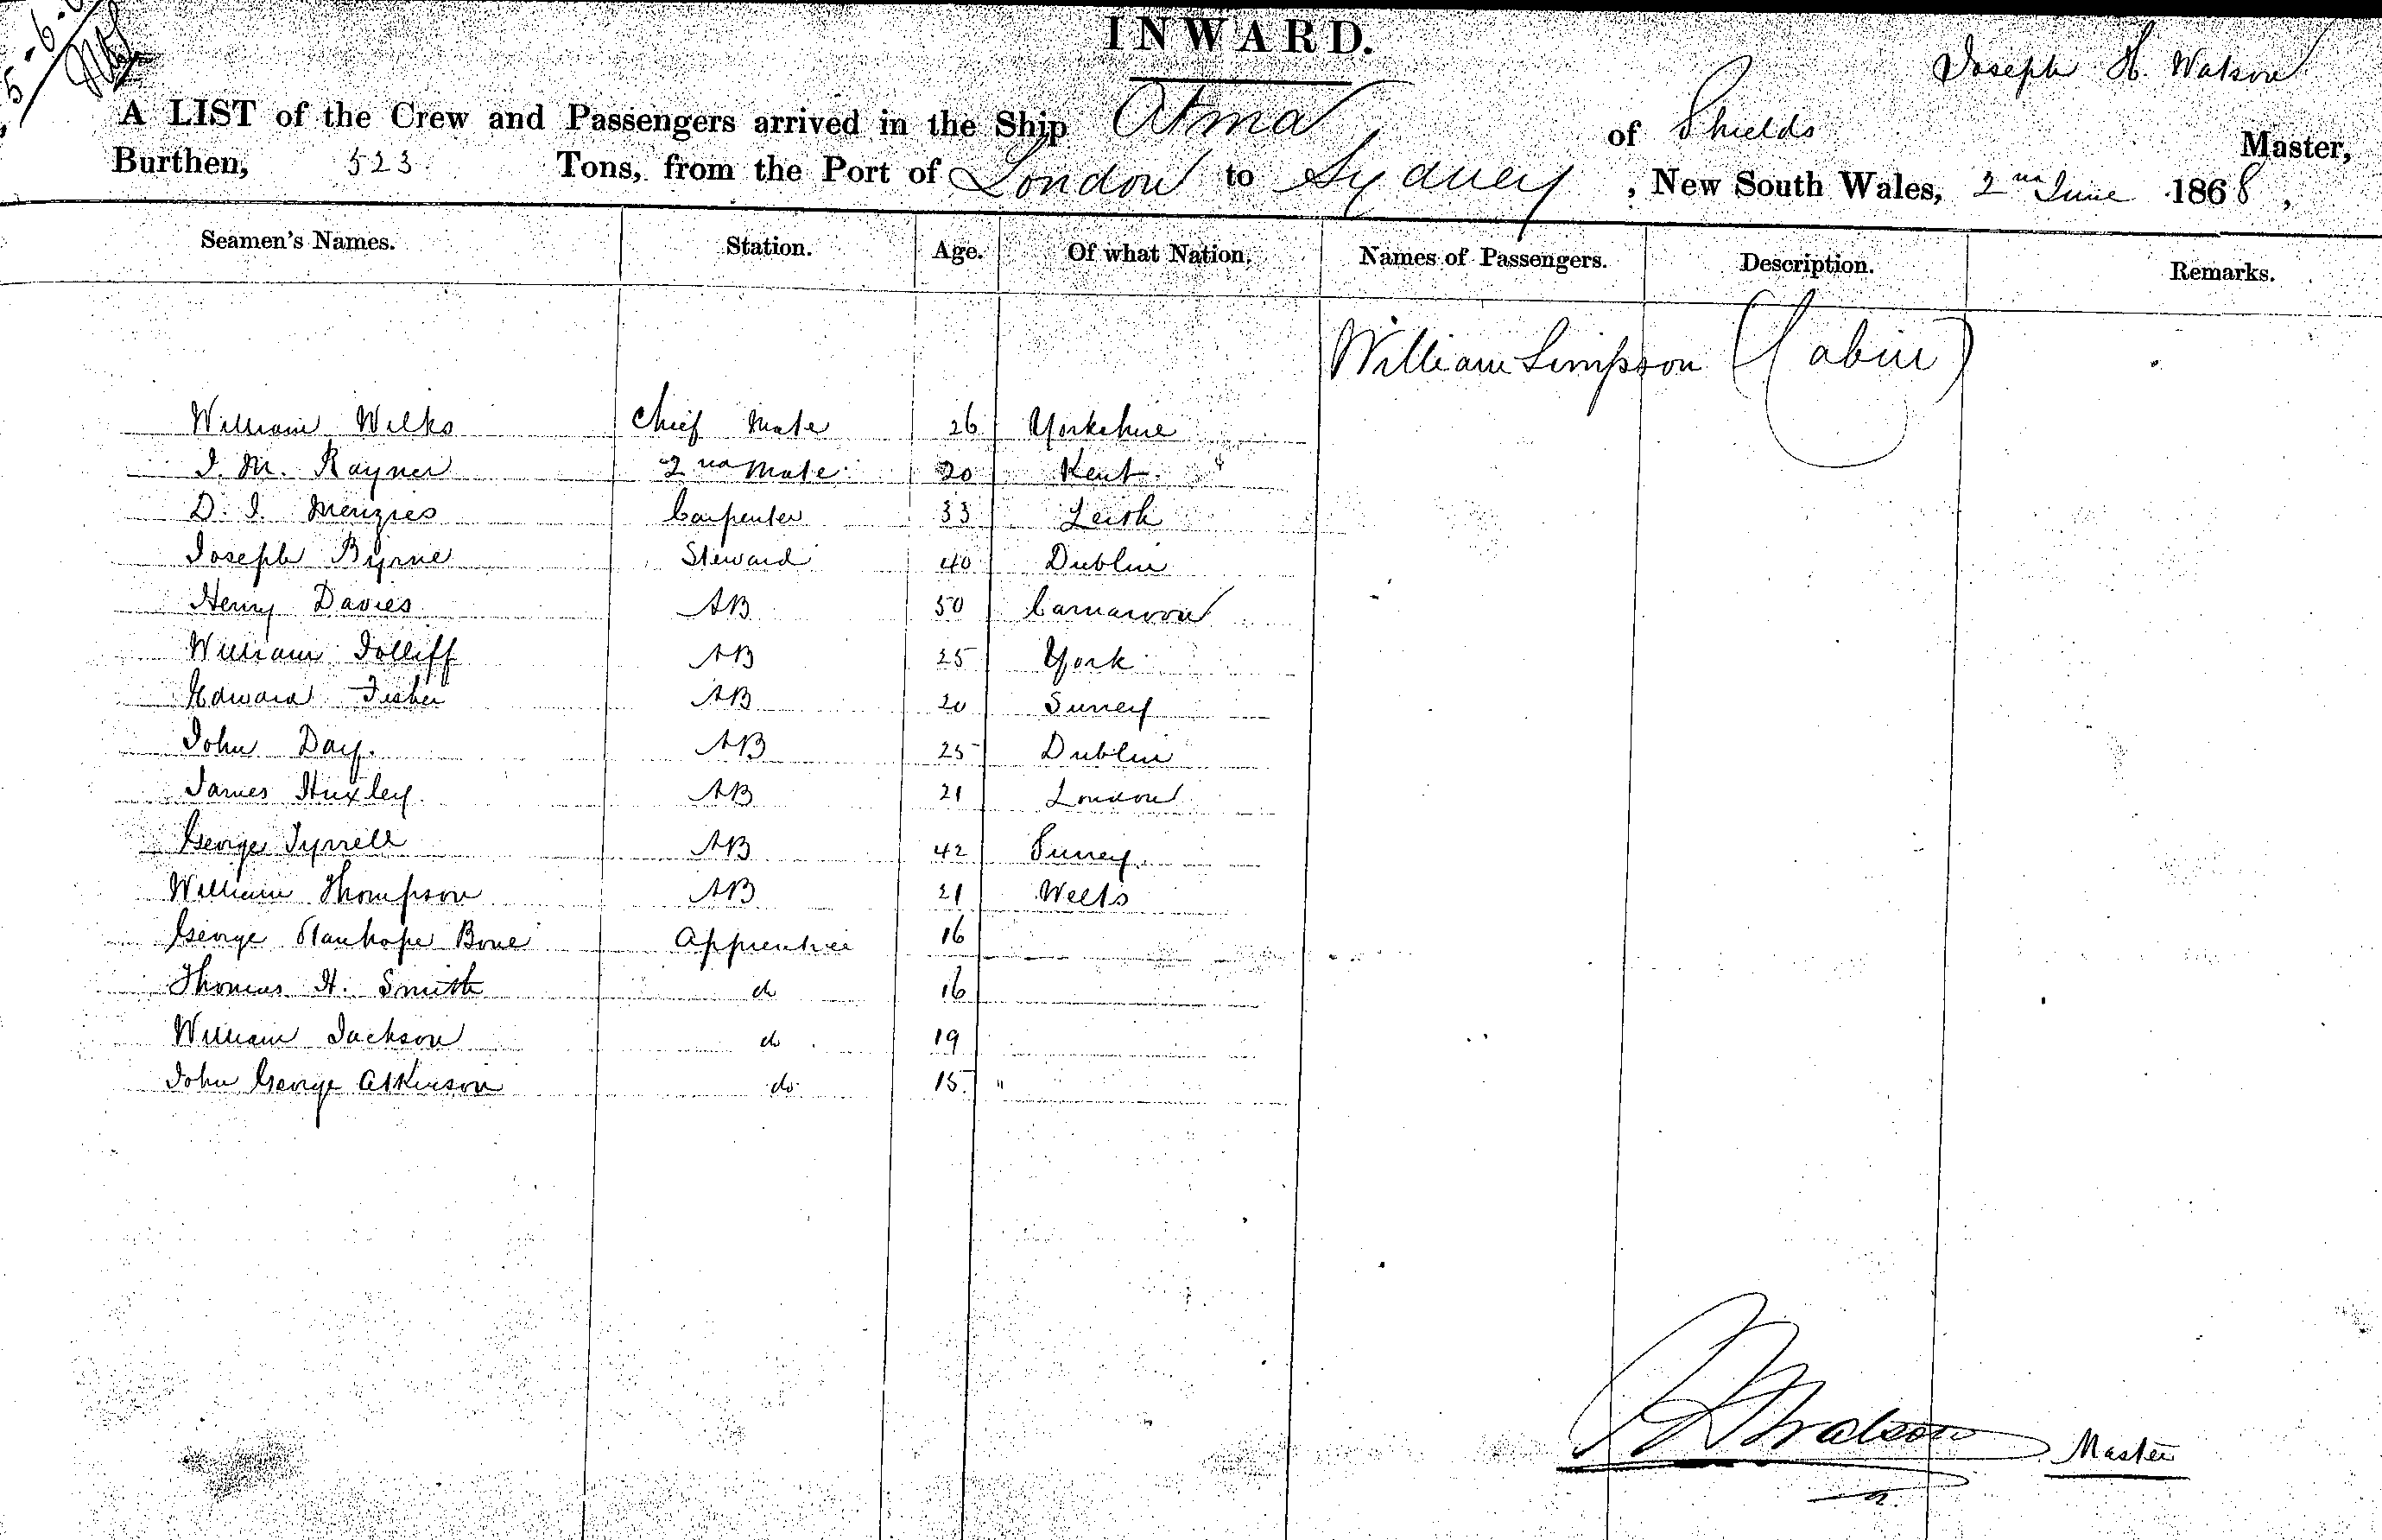 5-6-
INWARD.
Joseph H. Watson
A LIST of the Crew and Passengers arrived in the Ship Atma of Shields Master,
Burthen, 523 Tons, from the Port of London to Sydney, New South Wales, 2nd June 1868,
Seamen's Names. Station. Age. Of what Nation. Names of Passengers. Description. Remarks.
William Simpson (Cabin)
William Wilks Chief Mate 26 Yorkshire
J. M. Rayner 2nd Mate 20 Kent
D. J. Menzies Carpenter 33 Leith
Joseph Byrne Steward 40 Dublin
Henry Davies AB 50 Carnarvon
William Jolliff AB 25 York
Edward Fisher AB 20 Surrey
John Day. AB 25 Dublin
James Huxley AB 21 London
George Tyrrell AB 42 Surrey
William Thompson AB 21 Welts
George Stanhope Bone Apprentice 16
Thomas H. Smith do 16
William Jackson do 19
John George Atkinson do 15 "
J H Watson Master